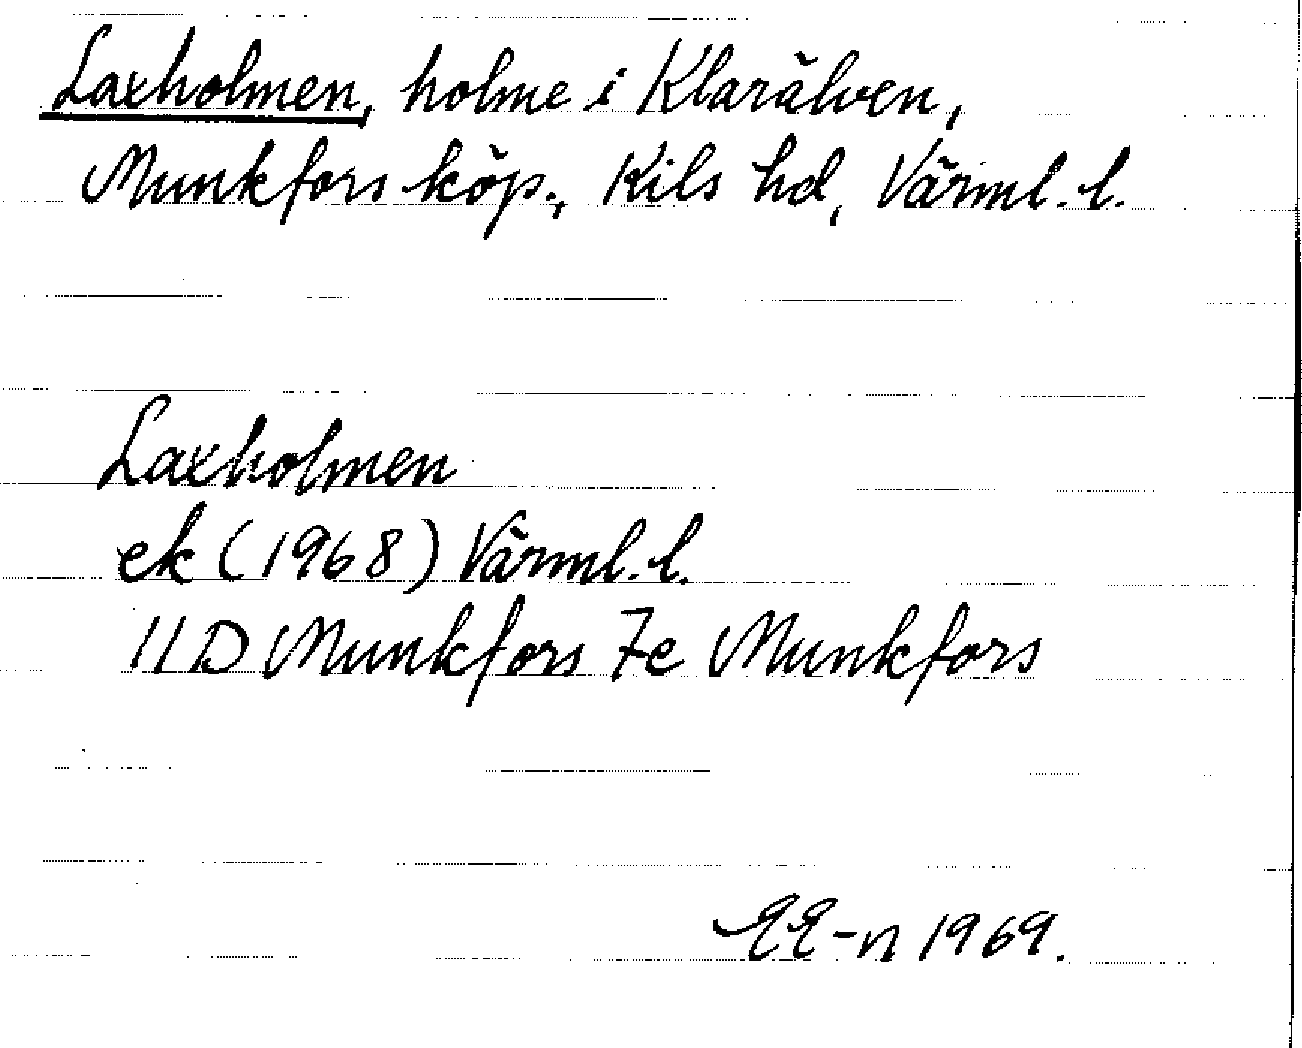 Laxholmen, holme i Klarälven,
Munkfors köp., Kils hd, Värml. l.
Laxholmen
ek (1968) Värml. l.
11D Munkfors 7e Munkfors
EE-n 1969.